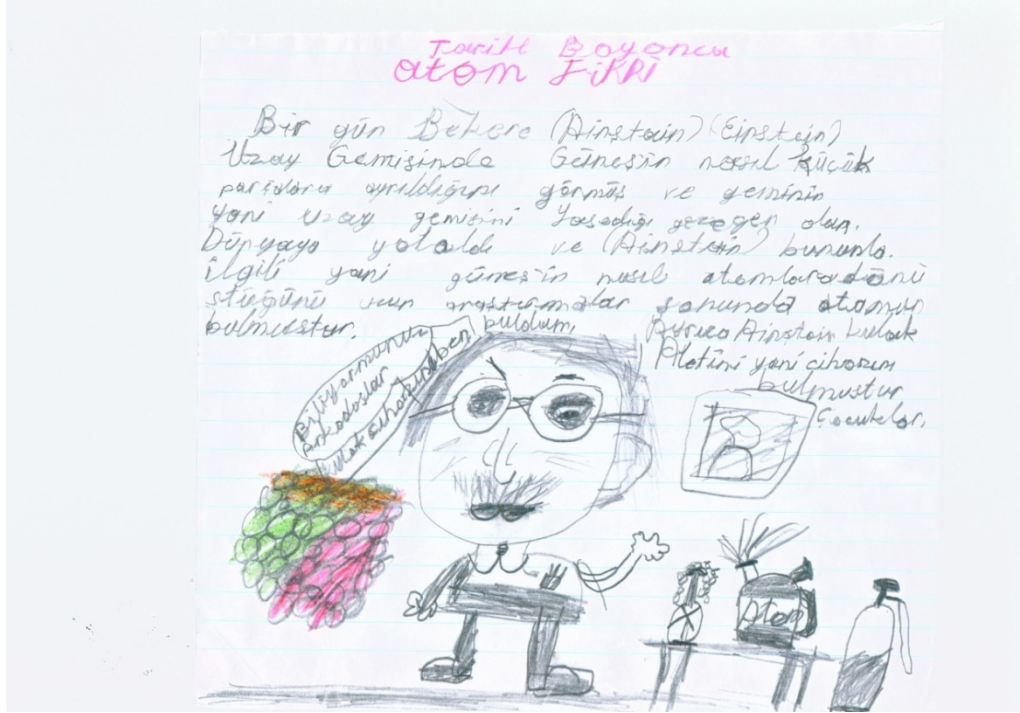 Tarih Boyonca
atom Fikri
Bir gün Bekere (Ainştain) (Einstein)
Uzay Gemisinde Güneşin nasıl küçük
parçalara ayrıldığını görmüş ve geminin
yani uzay gemisini Yaşadığı gezegen olan.
Dünyaya yolaldı ve (Ainstein) bununla.
ilgili yani güneş'in nasıl atomlara dönü
ştüğünü uzun araştırmalar sonunda atomun
bulmuştur.
Biliyormunuz
arkadaşlar
kulak cihazını ben buldum,
Ayrıca Ainştain kulak
Pilotini yani cihazın
bulmuştur
Çocuklar.
Atom